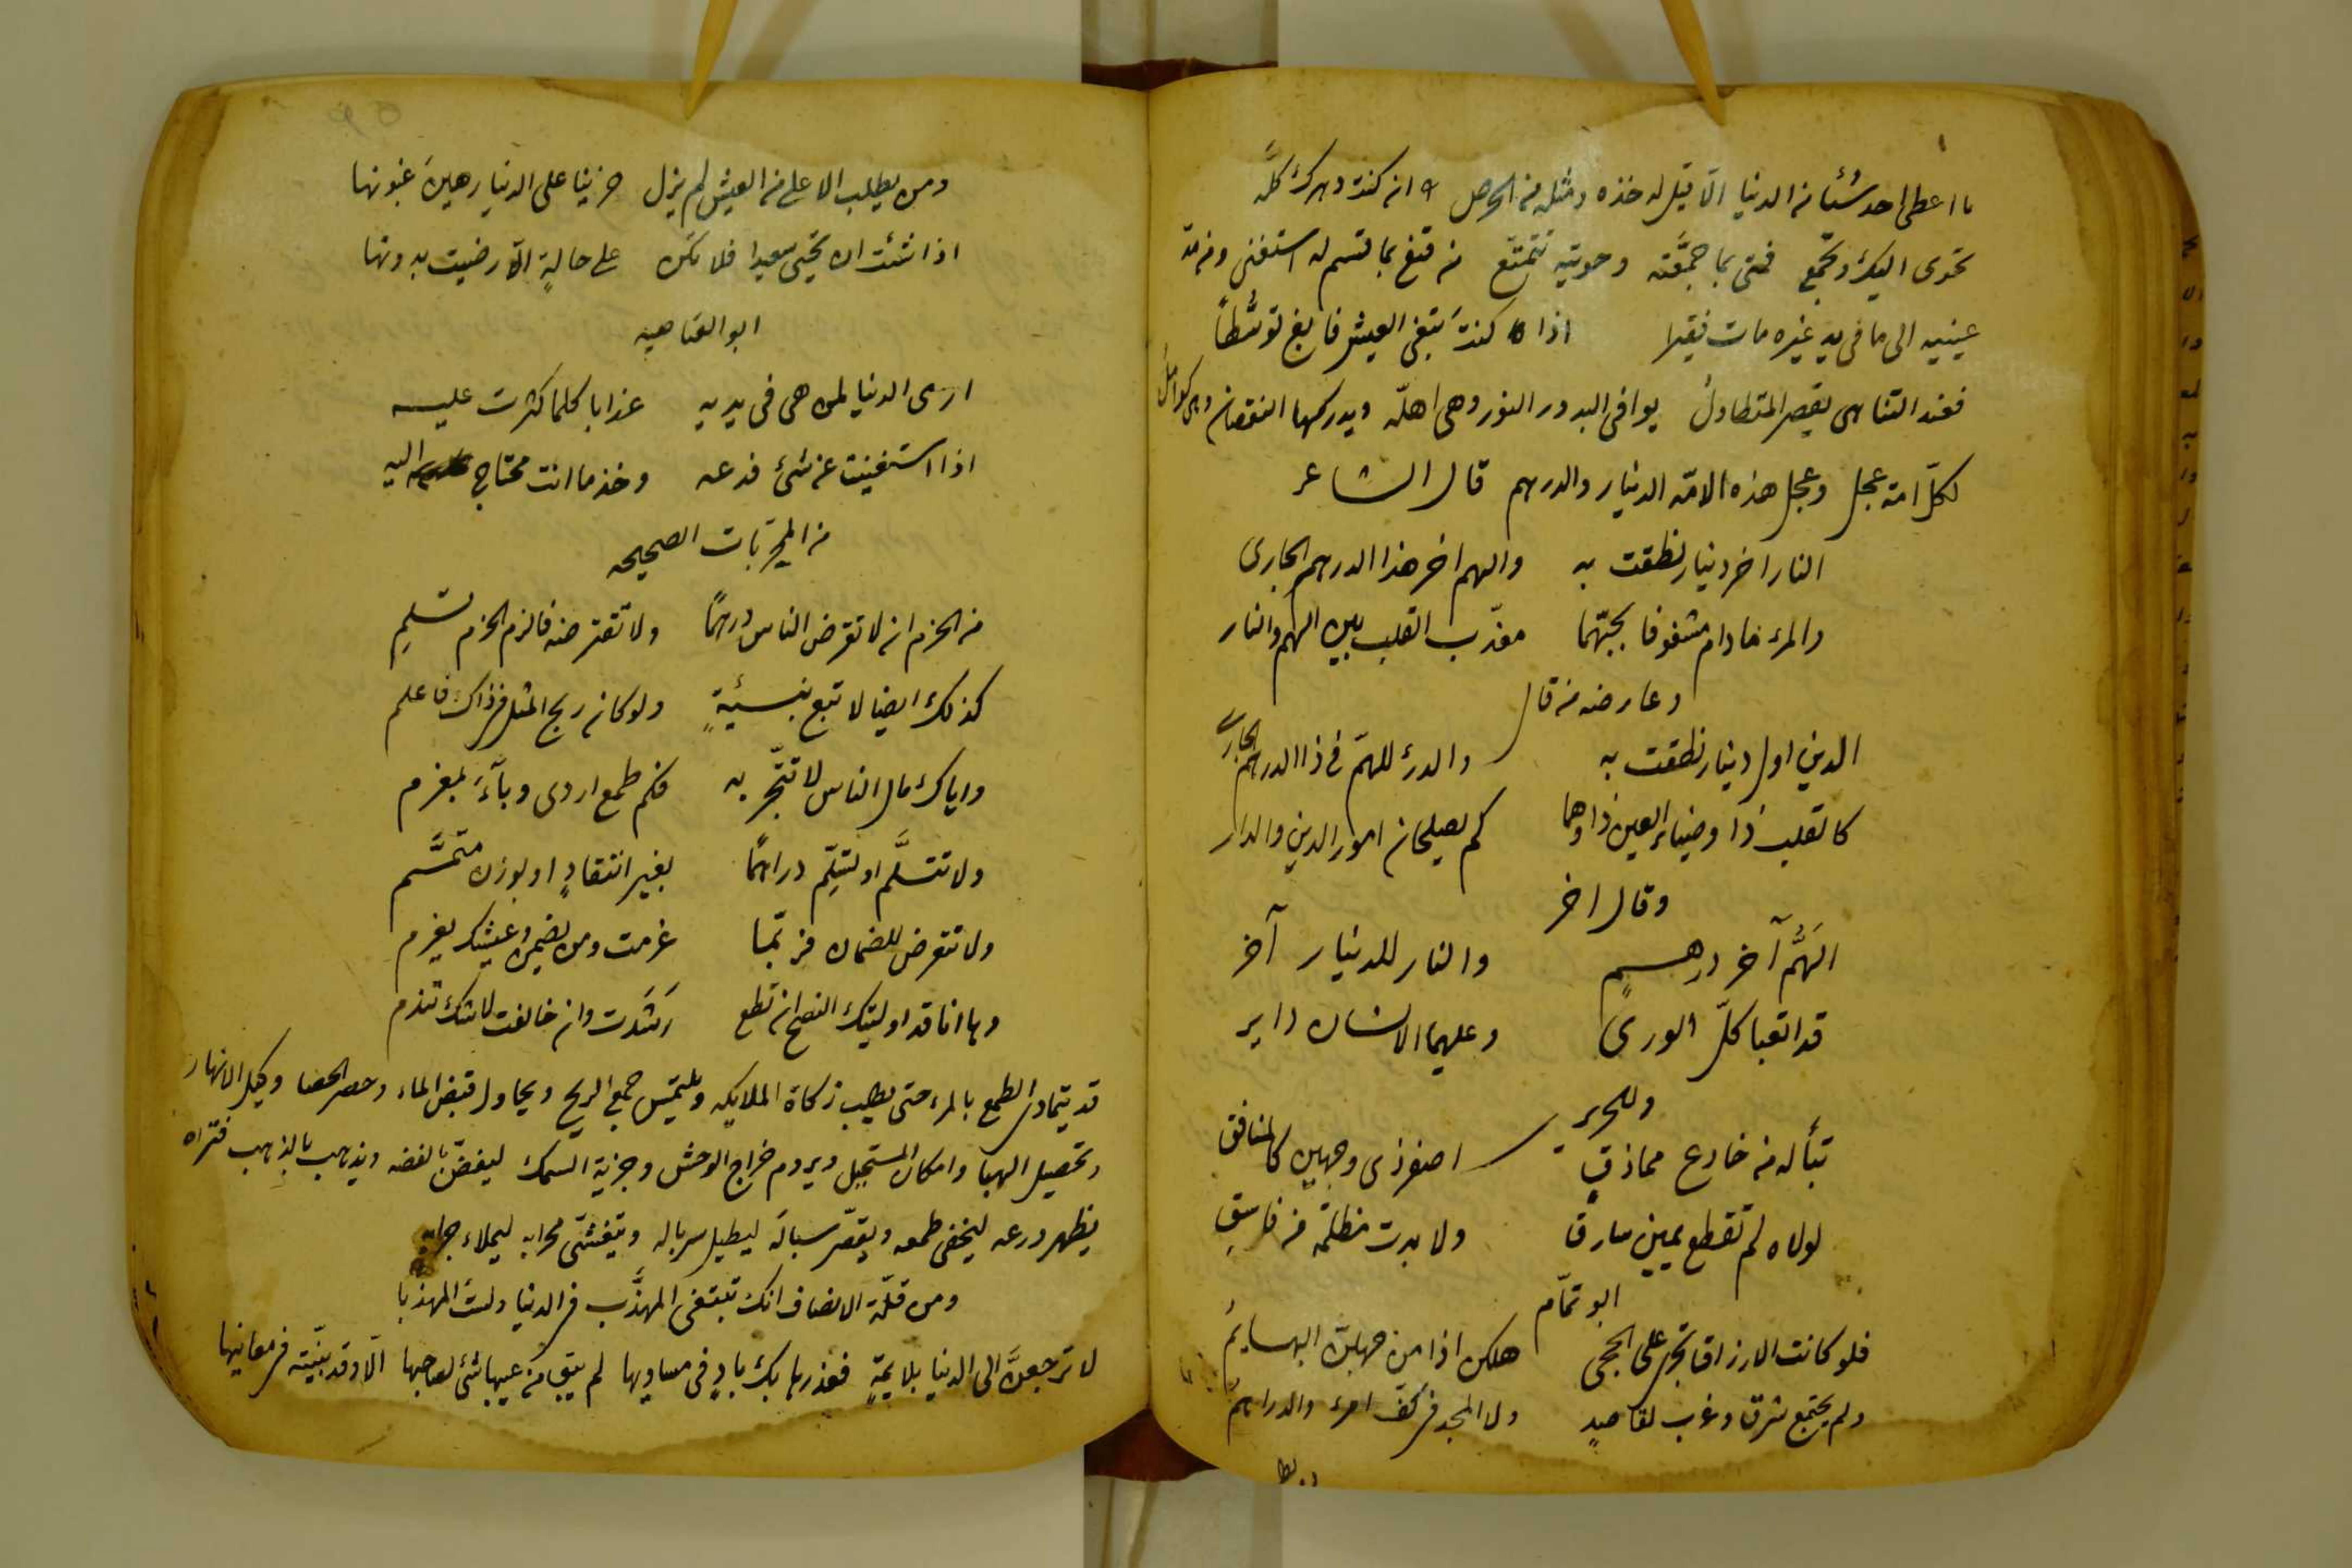 ما اعطى احد شيئا من الدنيا الا قيل له خذه ومثله من الحرص وان كنت دهرك كله
تحوى اليك وتجمع فمتى بما جمّعته وحويته تتمتع من قنع بما قسم له استغنى ومن مد
عينيه الى ما فى يد غيره مات فقيرا اذا كنتَ تبغى العيش فابغ توسّطاً
فعند التناهى يقصر المتطاول يوافى البدور النور وهى اهلّه ويدركها النقصان وهى كوامل
لكلّ امة عجل وعجل هذه الامّة الدينار والدرهم قال الشاعر
النار اخر دينار نطقت به والهم اخر هذا الدرهم الجارى
والمرء مادام مشغوفا بحبّهما معذّب القلب بين الهم والنار
وعارضه من قال
الدين اول دينار نطقت به والدرئ للهمّ فى ذا الدرهم الجارى
كالقلب ذا وضياء العين ذا وهما كم يصلحان امور الدين والدار
وقال اخر
الهَمُّ آخر درهمٍ والنار للدينار آخر
قد اتعبا كلّ الورى وعليهما الانسان داير
وللحرير
تبأ له من خادع مماذقٍ اصفر ذى وجهين كالمنافق
لولاه لم تقطع يمين سارق ولا بدت مظلمة من فاسق
ابو تمّام
فلو كانت الارزاق تجرى على الحجى هلكن اذا من جهلهنّ البهايمُ
ولم يجتمع شرق وغرب لقاصدٍ ولا المجد فى كفّ امرء والدراهمُ
ومن يطلب الاعلى من العيش لم يزل حزينا على الدنيا رهينَ غبونها
اذا شئت ان تحيى سعيدا فلا تكن على حالةٍ الّا رضيت بدونها
ابو العتاهيه
ارى الدنيا لمن هى فى يديه عذابا كلما كثرت عليه
اذا استغنيت عن شئ فدعه وخذ ما انت محتاج اليه
من المجرّبات الصحيحه
من الحزم ان لا تقرض الناس درهمًا ولا تقترضنه فالزم الحزم تسلمِ
كذلك ايضا لا تبع بنسيئةٍ ولو كان ربح المثل فى ذاك فاعلم
واياك مال الناس لا تتّجر به فكم طمع اردى وبآءَ بمغرم
ولا تتسلّم او تسلّم دراهمًا بغير انتقادٍ او بوزن متمّم
ولا تتعرض للضمان فربّما غرمت ومن يضمن وعيشك يغرم
وها انا قد اوليتك النصح ان تطع رَشَدت وان خالفت لا شك تندم
قد يتمادى الطمع بالمرء حتى يطلب زكاة الملايكه ويلتمس جمع الريح ويحاول قبض الماء وحصر الحصا وكيل الانهار
وتحصيل الهبا وامكان المستحيل ويروم خراج الوحش وجزية السمك ليفضّ بالفضه ويذهب بالذهب فتراه
يظهر ورعه ليخفى طمعه ويقصّر سباله ليطيل سرباله ويتغشّى محرابه ليملاء جرابه
ومن قلّة الانصاف انك تبتغى المهذَّب فى الدنيا ولستَ المهذبا
لا ترجعنَّ الى الدنيا بلايمةٍ فعذرها بك بادٍ فى مساويها لم يبق من عيبها شئ لصاحبها الّا وقد بيّنته فى معانيها